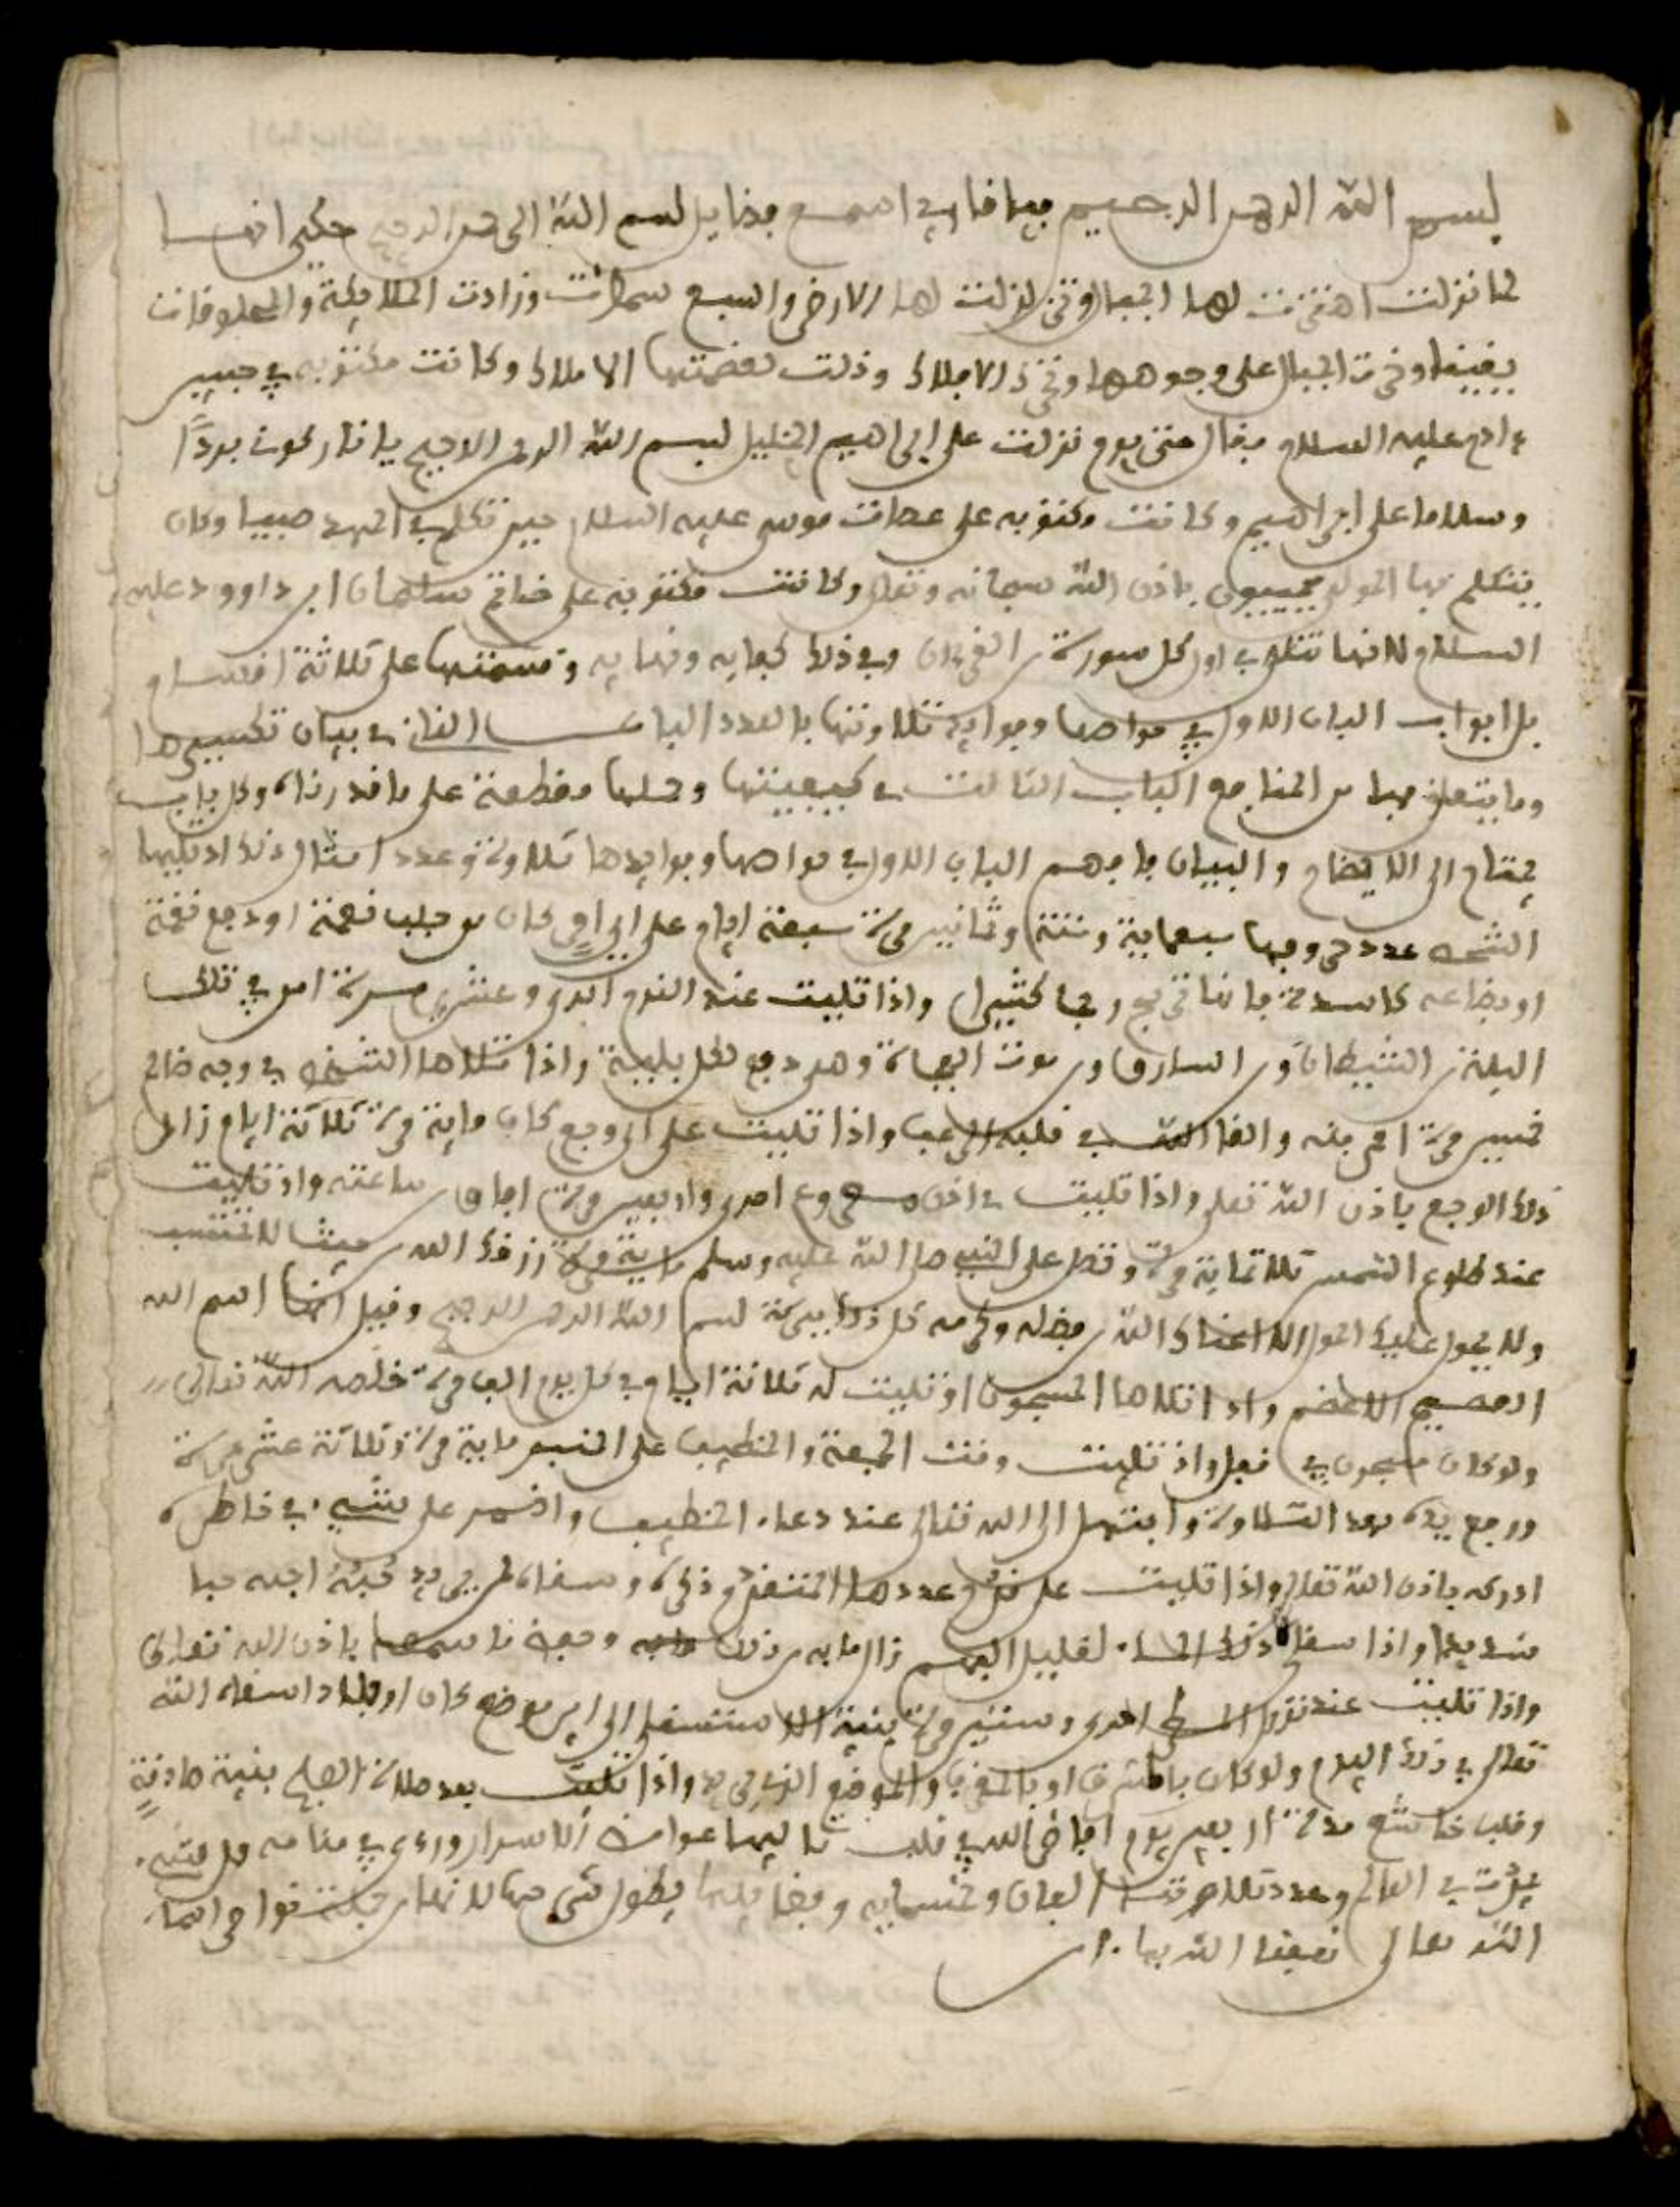 بسم الله الرحمن الرحيم فيا قاري اسمع فضايل بسم الله الرحمن الرحيم حكي انها
لما نزلت اهتزت لها الجبال وتزلزلت لها الارض والسبع سموات وزادت الملايكة والمخلوقات
يقينا وخرت الجبال على وجوهها الافلاك وذلت لعضمتها الاملاك وكانت مكتوبه في جبين
ءادم عليه السلام نزلت على ابراهيم الخليل بسم الله الرحمن الرحيم يا نار كوني بردًا
وسلاما على ابراهيم وكانت مكتوبه على عصات موسى عليه السلام حين تكلم في المهد صبيا وكان
يتكلم بها الموتى فيحييون باذن الله سبحانه وتعالى وكانت مكتوبة على خاتم سليمان ابن داوود عليه
السلام لانها تتلى في اول كل سورة من القرءان وفي ذلك كفايه ونهايه وقسمتها على ثلاثة اقسام
بل ابواب الباب الاول في خواصها وفوايد تلاوتها بالعدد الباب الثاني في بيان تكسيرها
وما يتعلق بها من المنافع الباب الثالث في كيفيتها وحلها مقطعة على ما قدرناه وكل باب
يحتاج الى الايضاح والبيان فافهم الباب الاول في خواصها وفوايدها تلاوة وعددا مثال ذلك اذ تليها
الشخص عدد حروفها سبعماية وستة وثمانين مرة سبعة ايام على اي امر كان من جلب نعمة او دفع نقمة
او بضاعه كاسدة فانها تربح ربحا كثيرا واذا تليت عند النوم احدى وعشرين مرة امن في تلك
اليلة من الشيطان ومن السارق ومن موت الفجاة وهي دفع لكل بلية واذا تلاها الشخص في وجه ظالم
خمسين مرة امن منه والقا الله في قلبه الرعب واذا تليت على اي وجع كان ماية مرة ثلاثة ايام زال
ذلك الوجع باذن الله تعلى واذا تليت في اذن مصروع احدى واربعين مرة افاق من ساعته واذا تليت
عند طلوع الشمس ثلاثماية مرة وتصل على النبي صلى الله عليه وسلم ماية مرة رزقك الله من حيث لا تحتسب
ولا يحول عليك الحول الا اغناك الله من فضله وكرمه كل ذلك ببركة بسم الله الرحمن الرحيم وقيل انها اسم الله
العضيم الاعضم واذا تلاها المسجون او تليت له ثلاثة ايام في كل يوم الف مرة خلصه الله تعالى
ولو كان مسجون في واذ تليت وقت الجمعة والخطيب على المنبر ماية مرة وثلاثة عشر مرة
ورفع يده بعد التلاوة وابتهل الى الله تعالى عند دعاء الخطيب واضمر على شيء في خاطره
ادركه باذن الله تعالى واذا تليت على عددها المتقدم ذكره وسقاه لمن يريد محبته احبه حبا
شديدا واذا سقى ذلك الماء لقليل الفهم زال ما به من ذلك وحفظ ما سمعه باذن الله تعالى
واذا تليت عند نزول المطر احدى وستين مرة بنية الاستسقاء الى اي موضع كان
تعالى في ذلك اليوم ولو كان بالمشرق او بالمغرب والموضع واذا تليت بعد صلاة الصبح بنية صادقةٍ
وقلب خاشع مدة اربعين يوم افاض الله في قلب تاليها عوامض الاسرار وراءى في منامه كل شيء
يحدث في العالم وعدد تلاوتها الفان وخمسمايه وفضايلها يطول شرحها
الله تعالى نفعنا الله بها